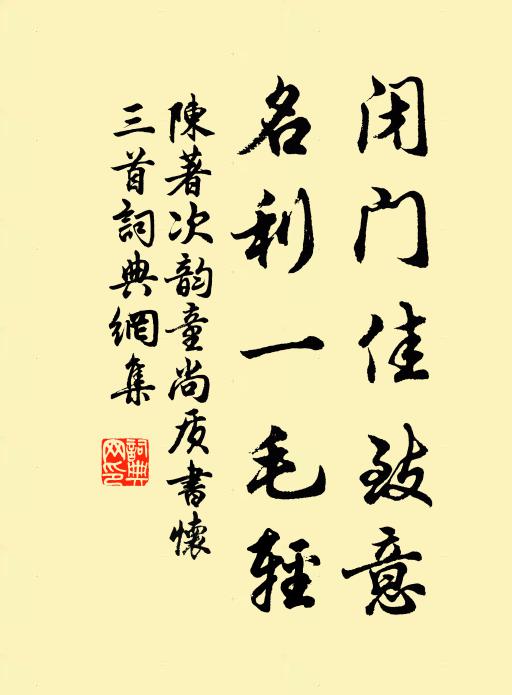 闭门佳致意
名利一毛輕
陳著次韵童尚质書懷
三首詞典網集
詞典網印